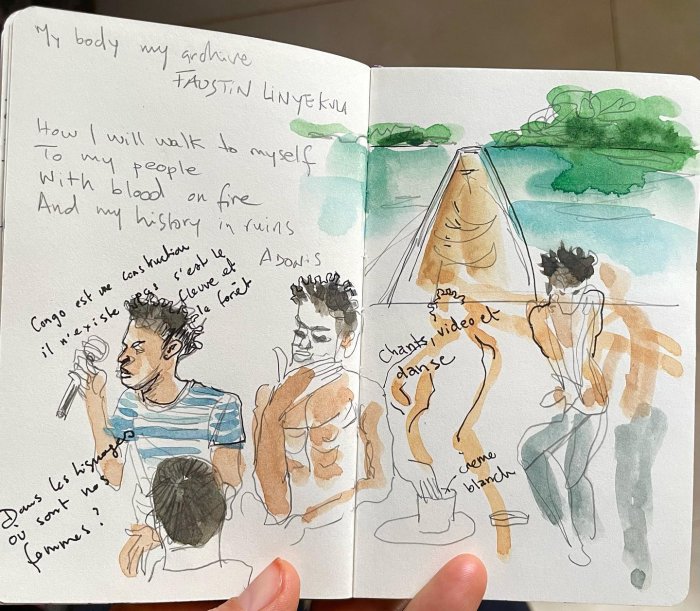 My body my archive
FAUSTIN LINYEKULA
How I will walk to myself
To my people
With blood on fire
And my history in ruins
ADONIS
Congo est une construction
il n'existe pas c'est le
fleuve et
la forêt
Dans les
où sont nos
femmes ?
Chants, video et
danse
crème
blanch